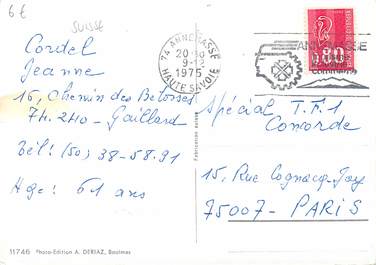 6€
SUISSE
Cordel
Jeanne
16, Chemin des
74.240 - Gaillard
Tél! (50) 38-58.91
Age: 61 ans
74 ANNEMASSE
20-30
9-12
1975
HAUTE SAVOIE
ANNEMASSE
0,80
Spécial T.F.1
Concorde
15, Rue Cognacq-Jay
75007 - PARIS
11746 Photo-Edition A. DERIAZ, Baulmes